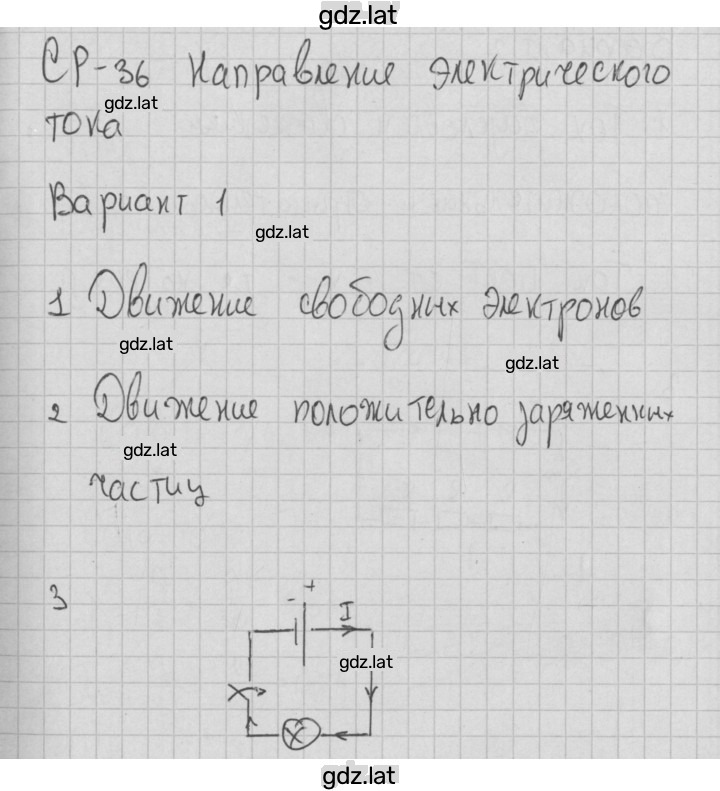 gdz.lat
СР-36 Направление электрического
gdz.lat
тока
Вариант 1
gdz.lat
1 Движение свободных электронов
gdz.lat
gdz.lat
2 Движение положительно заряженных
gdz.lat
частиц
3
- +
I
gdz.lat
gdz.lat